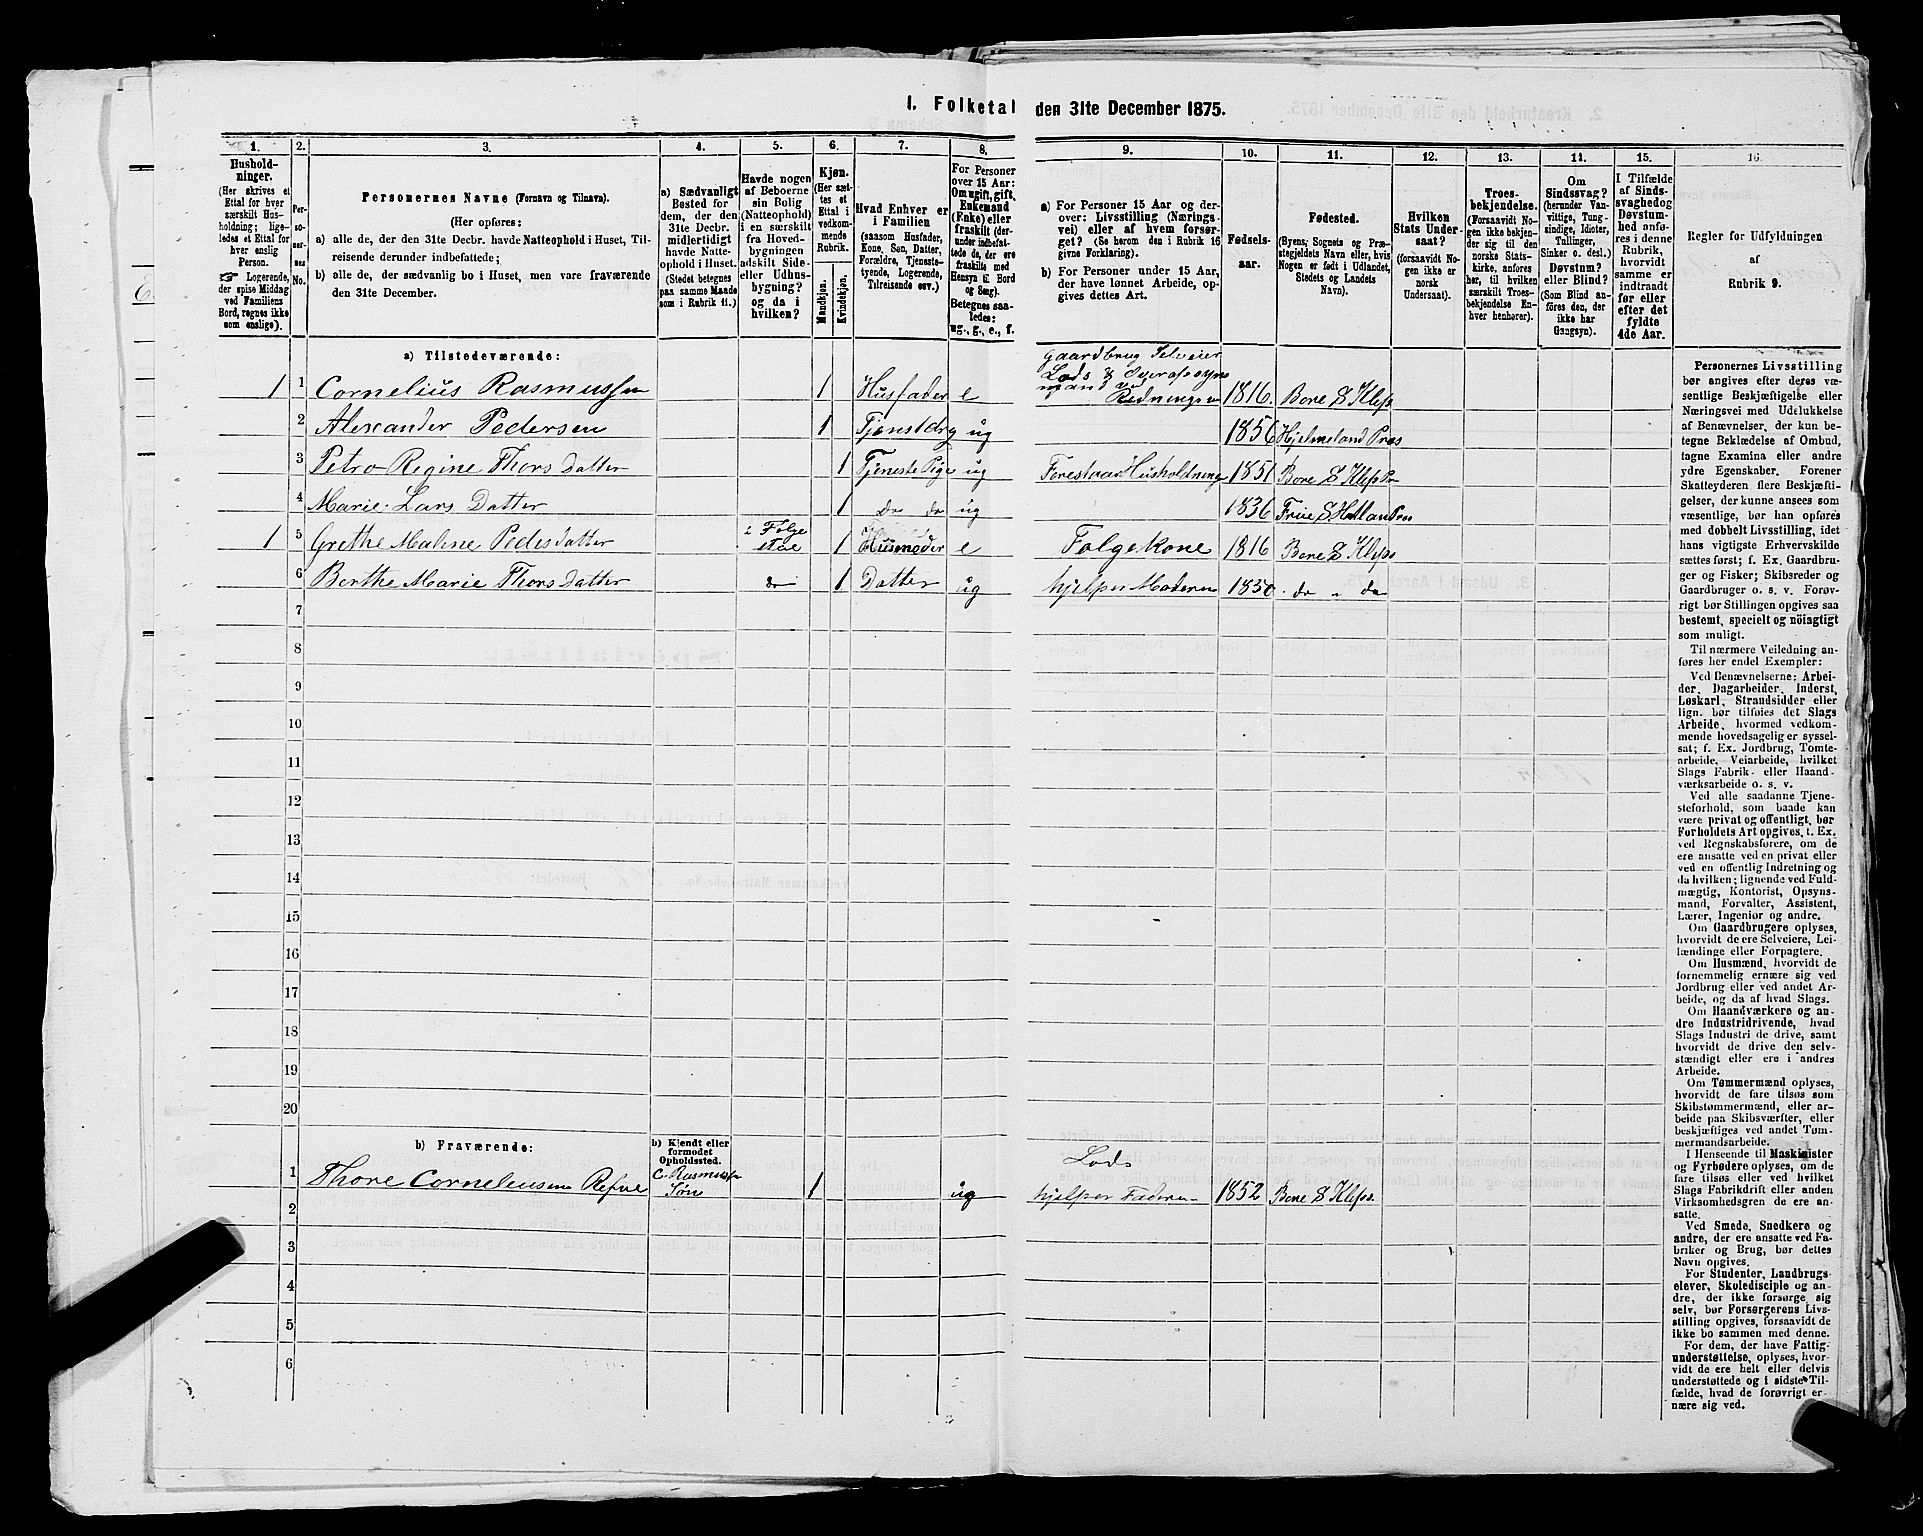 1. Folketal den 31te December 1875.
1. 2. 3. 4. 5. 6. 7. 8. 9. 10. 11. 12. 13. 14. 15. 16.
Hushold-
ninger.
(Her skrives et
Ettal for hver
særskilt Hus-
holdning; lige-
ledes et Ettal for
hver enslig
Person.
☞ Logerende,
der spise Middag
ved Familiens
Bord, regnes ikke
som enslige).
Per-
so-
ner-
nes
No.
Personernes Navne (Fornavn og Tilnavn).
(Her opføres:
a) alle de, der den 31te Decbr. havde Natteophold i Huset, Til-
reisende derunder indbefattede;
b) alle de, der sædvanlig bo i Huset, men vare fraværende
den 31te December.
a) Sædvanligt
Bosted for
dem, der den
31te Decbr.
midlertidigt
havde Natte-
ophold i Huset.
(Stedet betegnes
paa samme Maade
som i Rubrik 11.)
Havde nogen
af Beboerne
sin Bolig
(Natteophold)
i en særskilt
fra Hoved-
bygningen
adskilt Side-
eller Udhus-
bygning?
og da i
hvilken?
Kjøn.
(Her sæt-
tes et
Ettal i
vedkom-
mende
Rubrik.
Mandkjøn.
Kvindekjøn.
Hvad Enhver er
i Familien
(saasom Husfader,
Kone, Søn, Datter,
Forældre, Tjeneste-
tyende, Logerende,
Tilreisende osv.)
For Personer
over 15 Aar:
Om ugift, gift,
Enkemand
(Enke) eller
fraskilt (der-
under indbefat-
tede de, der ere
fraskilte med
Hensyn til Bord
og Seng).
Betegnes saa-
ledes:
ug., g., e., f.
a) For Personer 15 Aar og der-
over: Livsstilling (Nærings-
vei) eller af hvem forsør-
get? (Se herom den i Rubrik 16
givne Forklaring).
b) For Personer under 15 Aar,
der have lønnet Arbeide, op-
gives dettes Art.
Fødsels-
aar.
Fødested.
(Byens, Sognets og Præ-
stegjeldets Navn eller, hvis
Nogen er født i Udlandet,
Stedets og Landets
Navn).
Hvilken
Stats Under-
saat?
(forsaavidt No-
gen ikke er
norsk
Undersaat).
Troes-
bekjendelse.
(Forsaavidt No-
gen ikke bekjen-
der sig til den
norske Stats-
kirke, anføres
her, til hvilken
særskilt Troes-
bekjendelse En-
hver henhører).
Om
Sindssvag?
(herunder Van-
vittige, Tung-
sindige, Idioter,
Tullinger,
Sinker o. desl.)
Døvstum?
eller Blind?
(Som Blind an-
føres den, der
ikke har
Gangsyn).
I Tilfælde
af Sinds-
svaghed og
Døvstum-
hed anføres
i denne
Rubrik,
hvorvidt
samme er
indtraadt
før eller
efter det
fyldte
4de Aar.
Regler for Udfyldningen
af
Rubrik 9.
a) Tilstedeværende:
Gaardbrug Selveier
1 1 Cornelius Rasmussen 1 Husfader e Lods & 1816. Bore S Klep
2 Alexander Pedersen 1 ug 1856 Hjelmeland Præs
3 Petro Regine Thors Datter 1 Tjeneste Pige ug Forestaar Husholdningen 1851 Bore S Klep Pr
4 Marie Lars Datter 1 do do ug 1836
1 5 Grethe Malene Peders Datter i Følge stue 1 Husmoder e Følgekone 1816 Bore S Klep
6 Berthe Marie Thors Datter do 1 Datter ug hjelper Moderen 1850. do " do
7
8
9
10
11
12
13
14
15
16
17
18
19
20
b) Fraværende:
b) Kjendt eller
formodet
Opholdssted.
1 Thore Corneliussen Refve C. Rasmussen Søn 1 ug Lods hjelper Faderen 1852 Bore S Klep.
2
3
4
5
6
Personernes Livsstilling
bør angives efter deres væ-
sentlige Beskjæftigelse eller
Næringsvei med Udelukkelse
af Benævnelser, der kun be-
tegne Beklædelse af Ombud,
tagne Examina eller andre
ydre Egenskaber. Forener
Skatteyderen flere Beskjæfti-
gelser, der kunne ansees som
væsentlige, bør han opføres
med dobbelt Livsstilling, idet
hans vigtigste Erhvervskilde
sættes først; f. Ex. Gaardbru-
ger og Fisker; Skibsreder og
Gaardbruger o. s. v. Forøv-
rigt bør Stillingen opgives saa
bestemt, specielt og nöiagtigt
som muligt.
Til nærmere Veiledning an-
føres her endel Exempler:
Ved Benævnelserne: Arbei-
der, Dagarbeider, Inderst,
Løskarl, Strandsidder eller
lign. bør tilføies det Slags
Arbeide, hvormed vedkom-
mende hovedsagelig er syssel-
sat; f. Ex. Jordbrug, Tomte-
arbeide, Veiarbeide, hvilket
Slags Fabrik- eller Haand-
værksarbeide o. s. v.
Ved alle saadanne Tjene-
steforhold, som baade kan
være privat og offentligt, bør
Forholdets Art opgives, t. Ex.
ved Regnskabsførere, om de
ere ansatte ved en privat eller
ved en offentlig Indretning og
da hvilken; lignende ved Fuld-
mægtig, Kontorist, Opsyns-
mand, Forvalter, Assistent,
Lærer, Ingeniør og andre.
Om Gaardbrugere oplyses,
hvorvidt de ere Selveiere, Lei-
lændinge eller Forpagtere.
Om Husmænd, hvorvidt de
fornemmelig ernære sig ved
Jordbrug eller ved andet Ar-
beide, og da af hvad Slags.
Om Haandværkere og an-
dre Industridrivende, hvad
Slags Industri de drive, samt
hvorvidt de drive den selv-
stændigt eller ere i andres
Arbeide.
Om Tømmermænd oplyses,
hvorvidt de fare tilsøs som
Skibstømmermænd, eller ar-
beide paa Skibsværfter, eller
beskjæftiges ved andet Tøm-
mermandsarbeide.
I Henseende til Maskinister
og Fyrbødere oplyses, om de
fare tilsøs eller ved hvilket
Slags Fabrikdrift eller anden
Virksomhedsgren de ere an-
satte.
Ved Smede, Snedkere og
andre, der ere ansatte ved Fa-
briker og Brug, bør dettes
Navn opgives.
For Studenter, Landbrugs-
elever, Skoledisciple og an-
dre, der ikke forsørge sig
selv, bør Forsørgerens Livs-
stilling opgives, forsaavidt de
ikke bo sammen med denne.
For dem, der have Fattig-
understøttelse, oplyses, hvor-
vidt de ere helt eller delvis
understøttede og i sidste Til-
fælde, hvad de forøvrigt er-
nære sig ved.